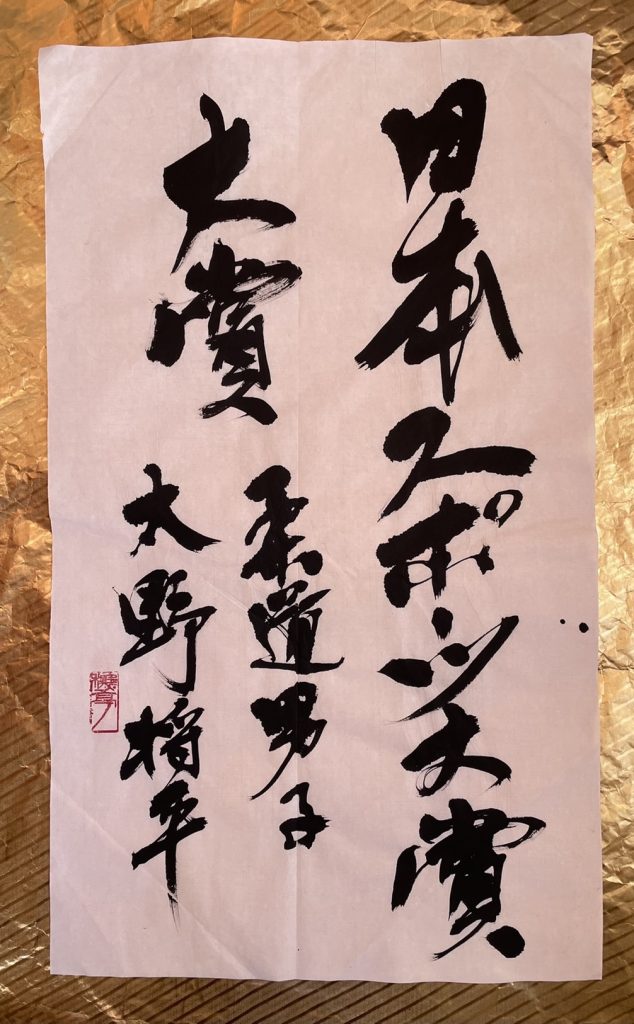 日本スポーツ大賞
大賞
柔道男子
大野将平